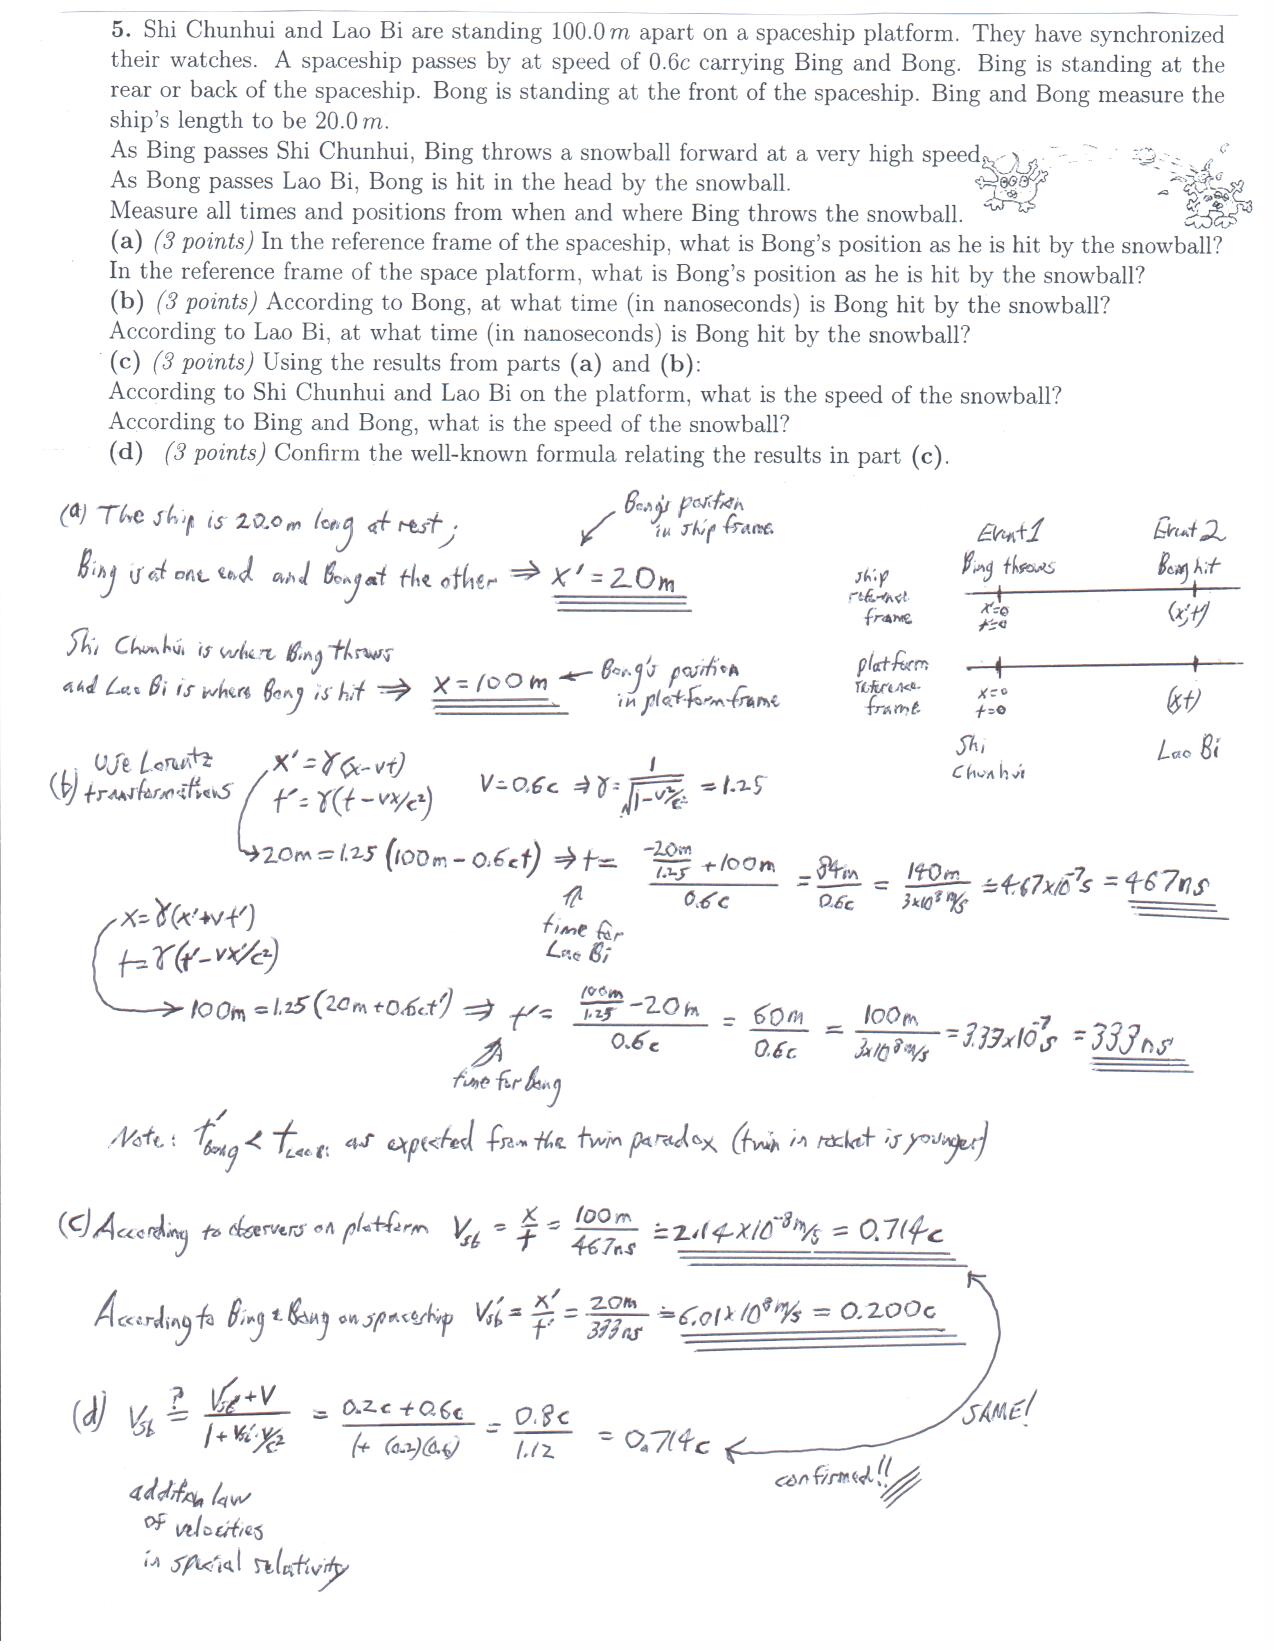 5. Shi Chunhui and Lao Bi are standing 100.0 m apart on a spaceship platform. They have synchronized
their watches. A spaceship passes by at speed of 0.6c carrying Bing and Bong. Bing is standing at the
rear or back of the spaceship. Bong is standing at the front of the spaceship. Bing and Bong measure the
ship's length to be 20.0 m.
As Bing passes Shi Chunhui, Bing throws a snowball forward at a very high speed.
As Bong passes Lao Bi, Bong is hit in the head by the snowball.
Measure all times and positions from when and where Bing throws the snowball.
(a) (3 points) In the reference frame of the spaceship, what is Bong's position as he is hit by the snowball?
In the reference frame of the space platform, what is Bong's position as he is hit by the snowball?
(b) (3 points) According to Bong, at what time (in nanoseconds) is Bong hit by the snowball?
According to Lao Bi, at what time (in nanoseconds) is Bong hit by the snowball?
(c) (3 points) Using the results from parts (a) and (b):
According to Shi Chunhui and Lao Bi on the platform, what is the speed of the snowball?
According to Bing and Bong, what is the speed of the snowball?
(d) (3 points) Confirm the well-known formula relating the results in part (c).
(a) The ship is 20.0m long at rest;
Bing is at one end and Bong at the other ⇒ x' = 20m
Bong's position
in ship frame
Event 1
Bing throws
Event 2
Bong hit
ship
reference
frame
x'=0
t'=0
(x',t')
Shi Chunhui is where Bing throws
and Lao Bi is where Bong is hit ⇒ x = 100m ← Bong's position
in platform frame
platform
reference
frame
x=0
t=0
(x,t)
Shi
Chunhui
Lao Bi
(b) Use Lorentz
transformations
x' = γ(x-vt)
t' = γ(t-vx/c²)
V=0.6c ⇒ γ = 1/√(1-v²/c²) = 1.25
→ 20m = 1.25 (100m - 0.6ct) ⇒ t = (-20m/1.25 + 100m)/0.6c = 84m/0.6c = 140m/3x10⁸ m/s ≐ 4.67x10⁻⁷s = 467ns
time for
Lao Bi
x = γ(x'+vt')
t = γ(t'-vx'/c²)
→ 100m = 1.25 (20m + 0.6ct') ⇒ t' = (100m/1.25 - 20m)/0.6c = 60m/0.6c = 100m/3x10⁸ m/s = 3.33x10⁻⁷s = 333ns
time for Bong
Note: t'Bong < tLao Bi as expected from the twin paradox (twin in rocket is younger)
(c) According to observers on platform Vsb = x/t = 100m/467ns ≐ 2.14 x 10⁻⁸ m/s = 0.714c
According to Bing & Bong on spaceship Vsb' = x'/t' = 20m/333ns ≐ 6.01 x 10⁸ m/s = 0.200c
(d) Vsb ?= (Vsb'+V)/(1+Vsb'·V/c²) = (0.2c + 0.6c)/(1+(0.2)(0.6)) = 0.8c/1.12 = 0.714c
SAME!
confirmed!!
addition law
of velocities
in special relativity